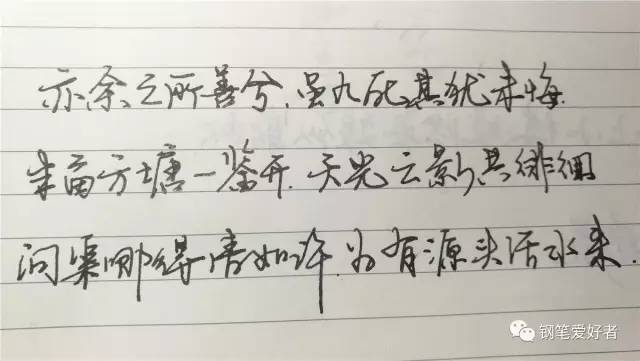 亦余之所善兮,虽九死其犹未悔.
半亩方塘一鉴开.天光云影共徘徊
问渠哪得清如许.为有源头活水来.
钢笔爱好者